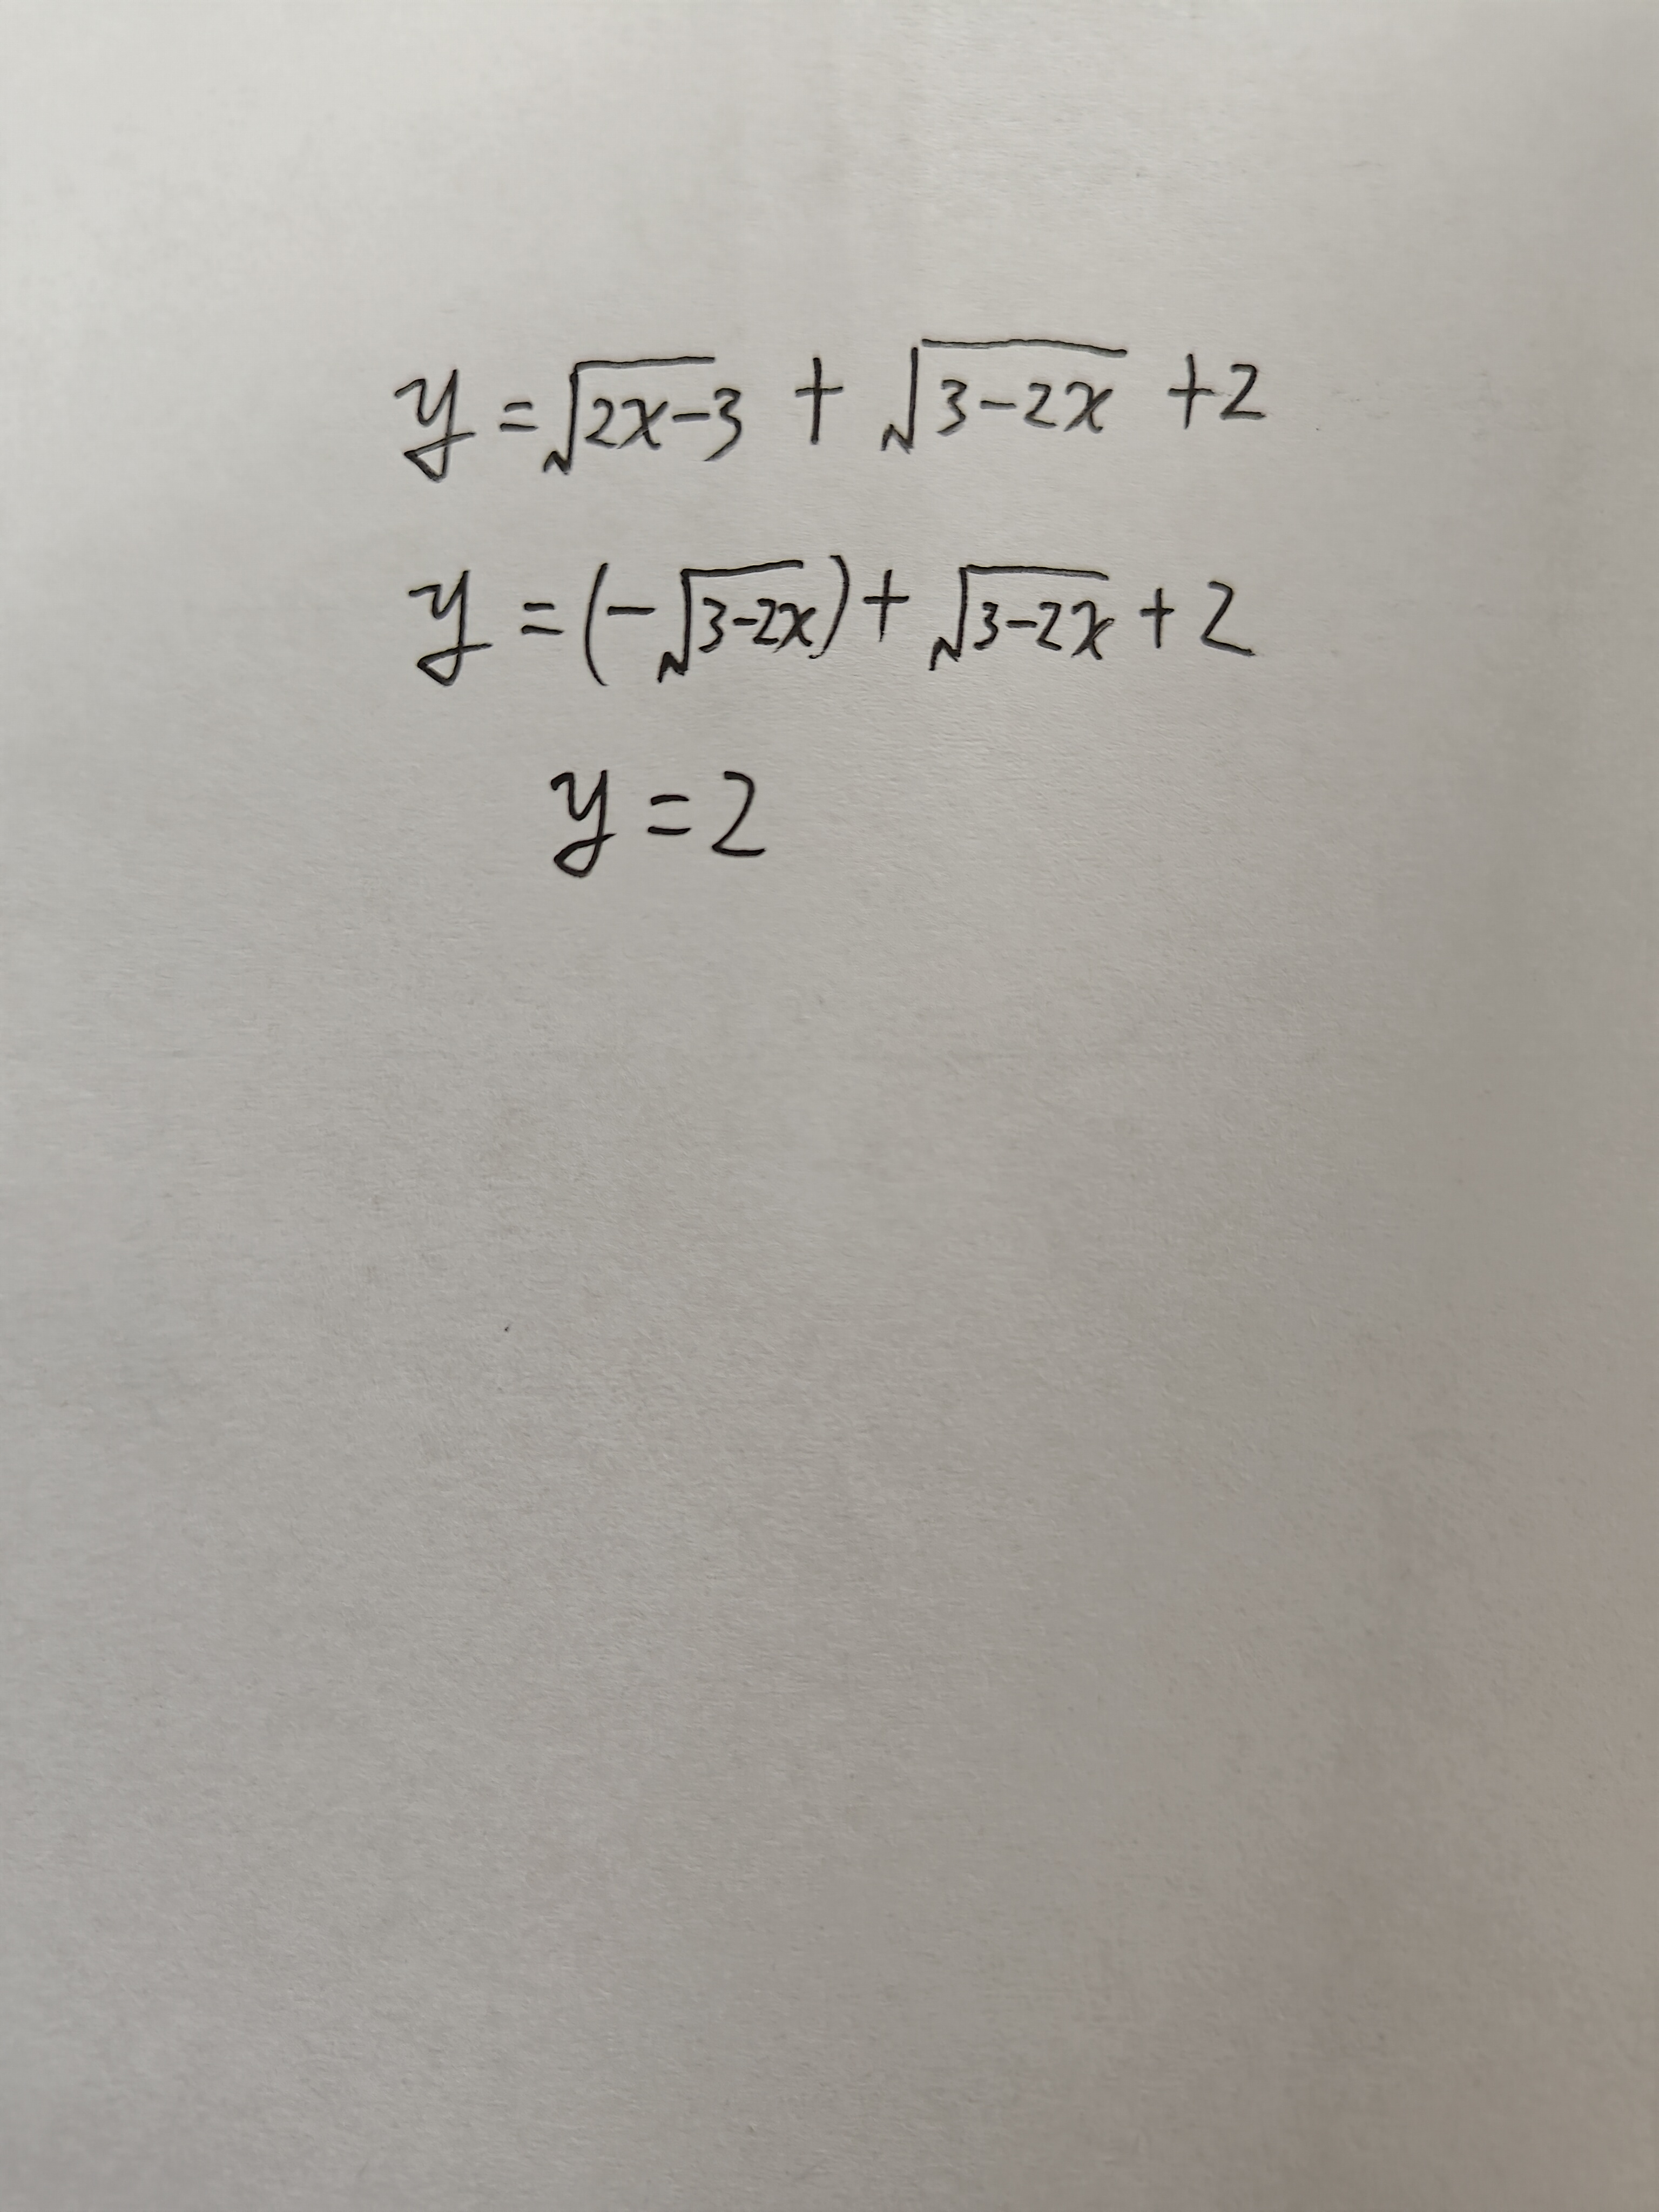 y = √(2x-3) + √(3-2x) + 2
y = (-√(3-2x)) + √(3-2x) + 2
y = 2